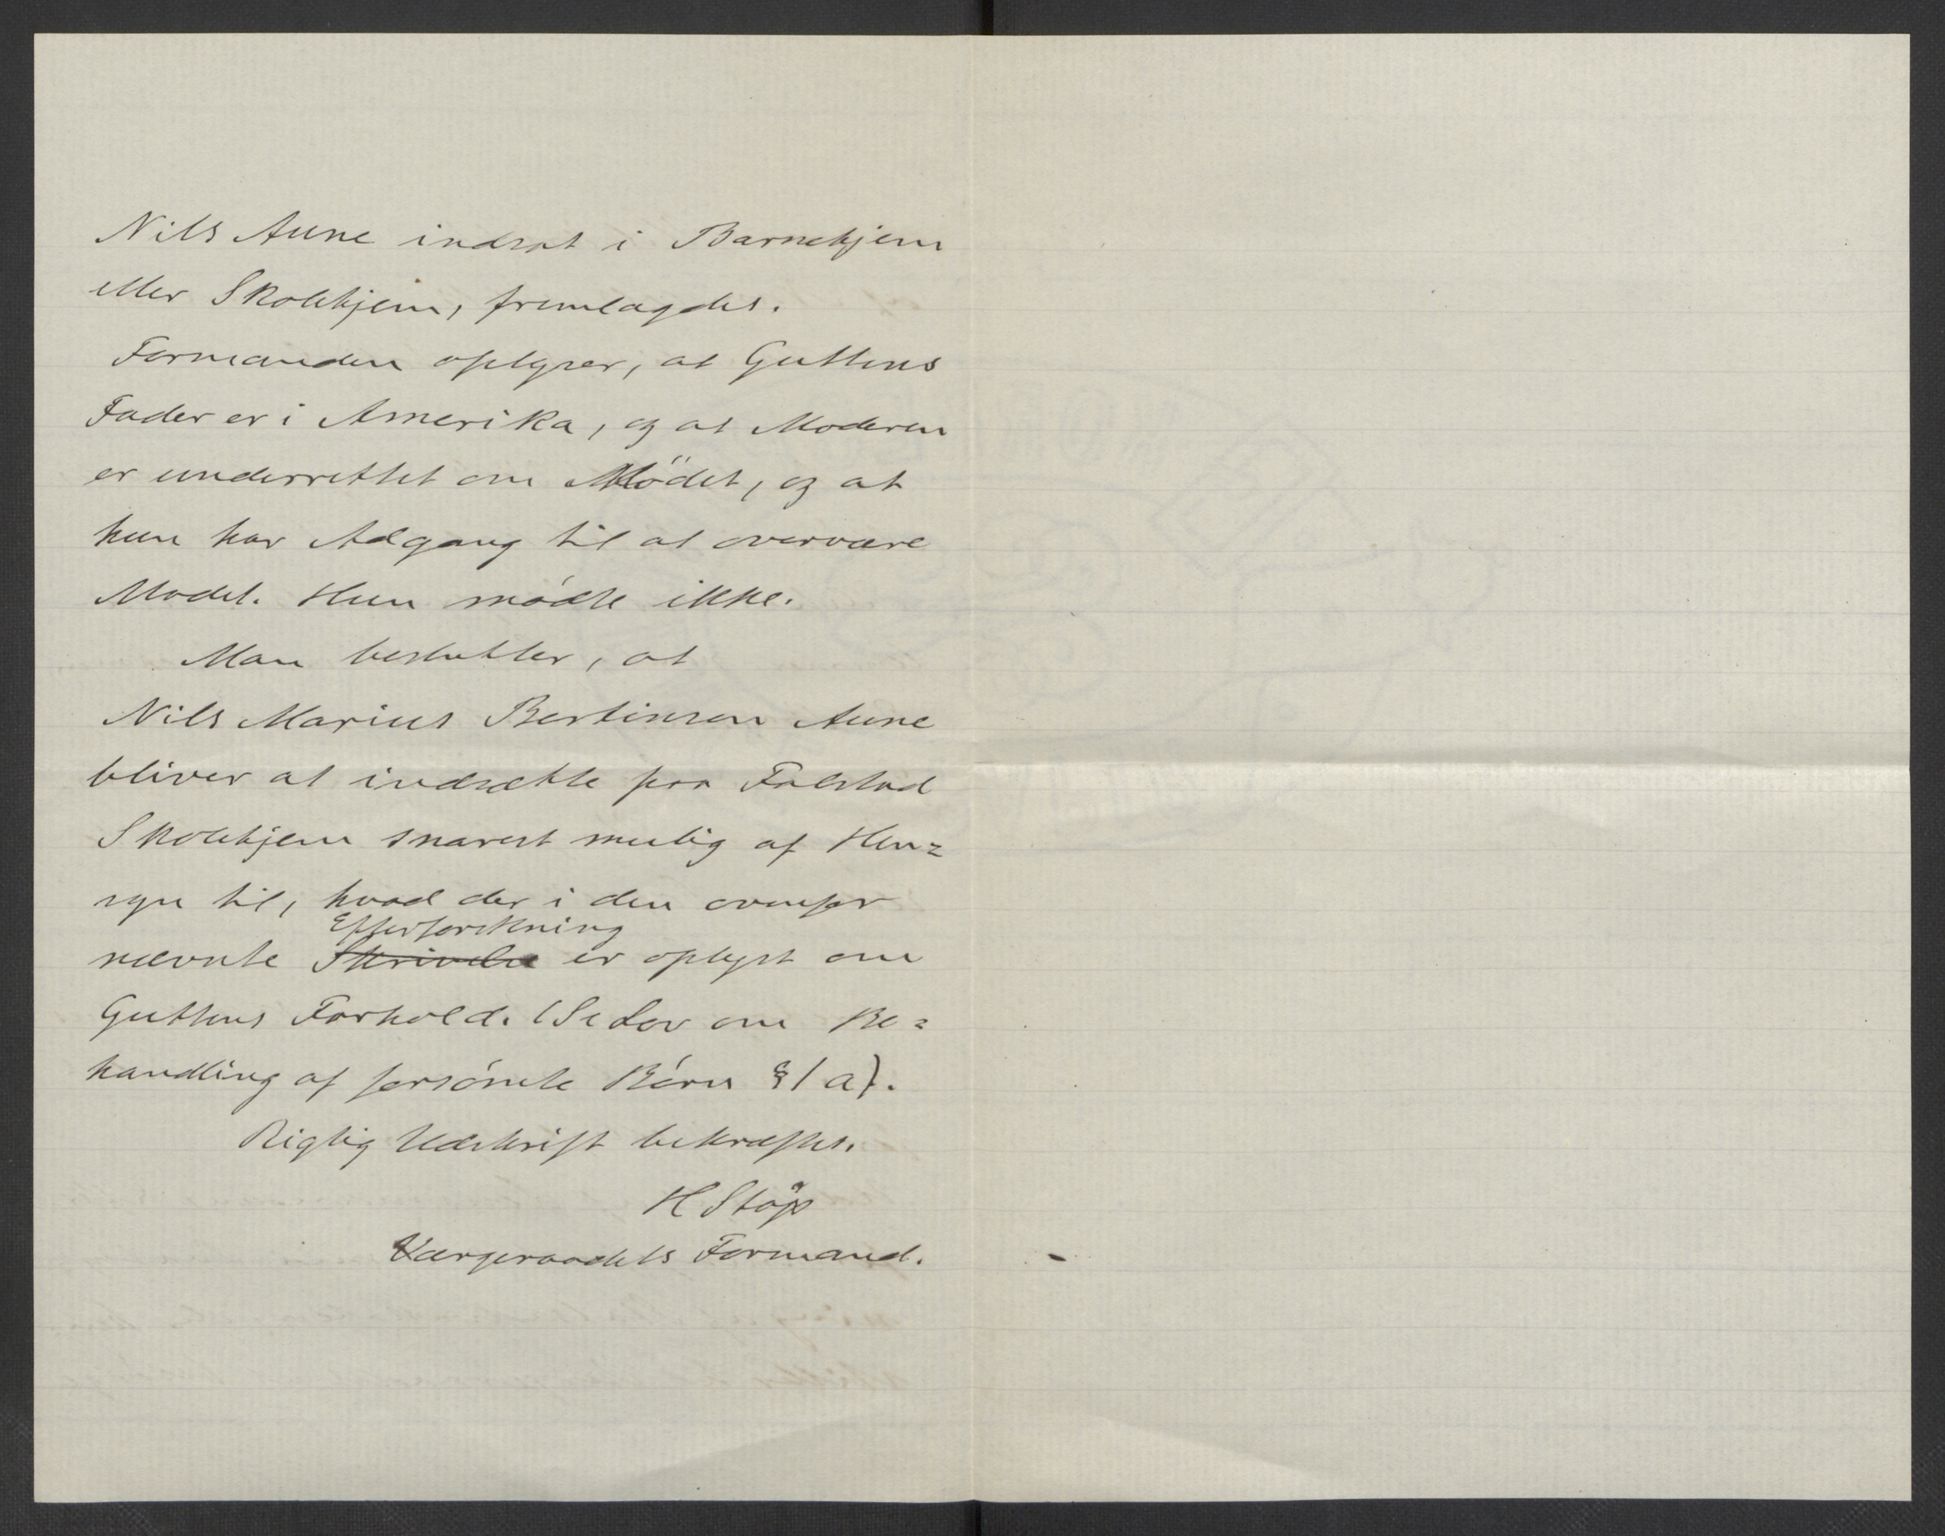 Nils Aune indsat i Barnehjem
eller Skolehjem, fremlagdes.
Formanden oplyser, at Guttens
Fader er i Amerika, og at Moderen
er underrettet om Mödet, og at
hun har Adgang til at overvære
Modet. Hun mødte ikke.
Man beslutter, at
Nils Marius Bertinsen Aune
bliver at indsætte paa Falstad
Skolehjem snarest mulig af Hen=
syn til, hvad der i den ovenfor
Efterforskning
nævnte Skrivelse er oplyst om
Guttens Forhold. (Se Lov om Be=
handling af forsømte Børn § 1 a).
Rigtig Udskrift bekræftes.
H Stöp
Værgeraadets Formand.